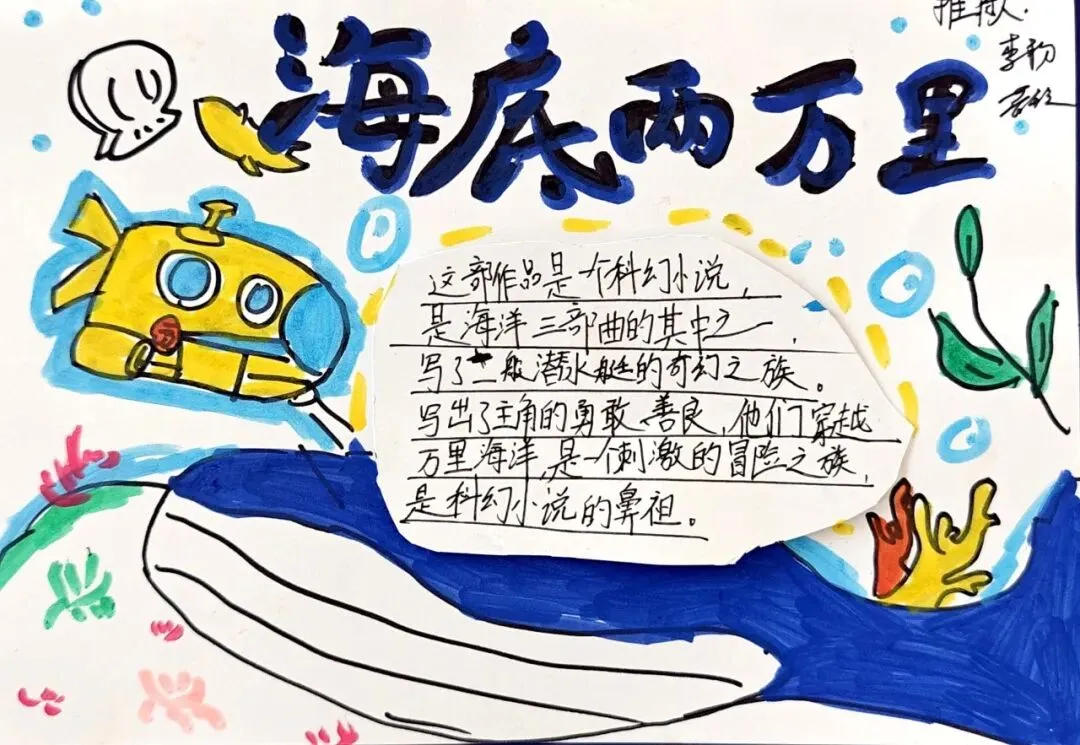 海底两万里
推荐人:
李
这部作品是一个科幻小说,
是海洋三部曲的其中之一,
写了一般潜水艇的奇幻之族。
写出了主角的勇敢、善良,他们穿越
万里海洋,是一个刺激的冒险之族,
是科幻小说的鼻祖。